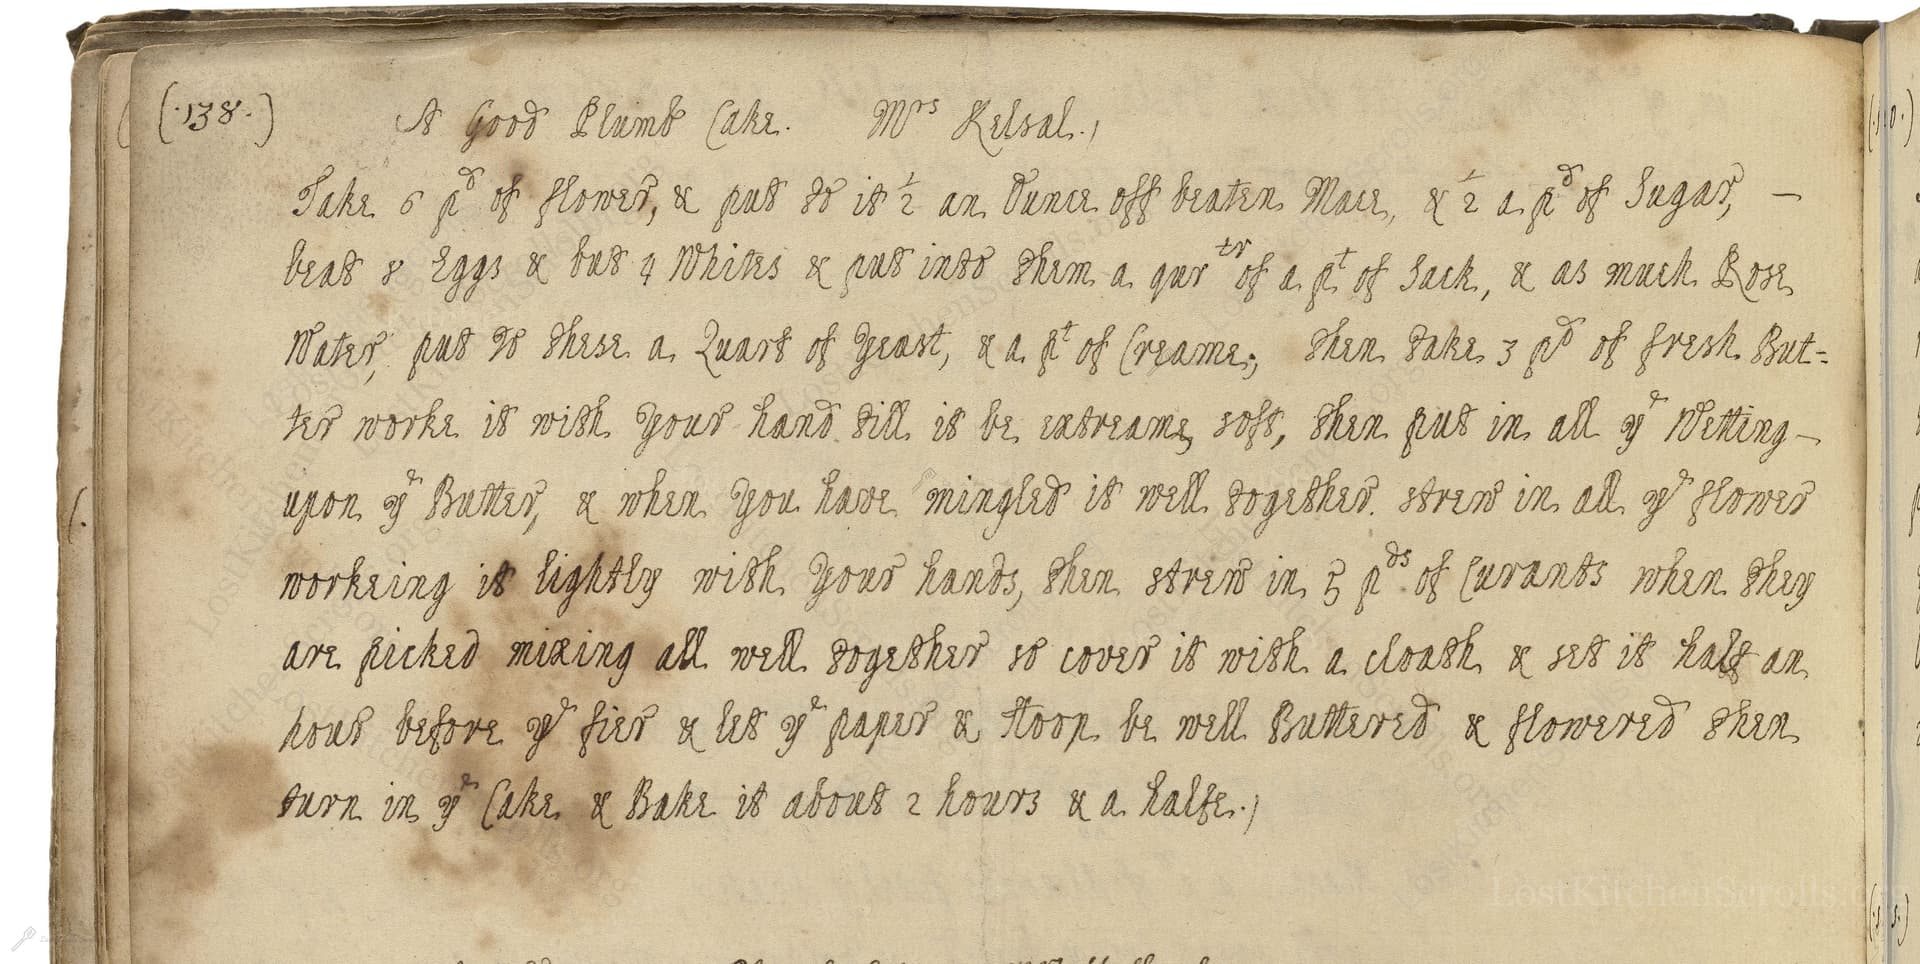 (.138.) A Good Plumb Cake. Mrs Kelsal.
Take 6 pd of flower, & put to it ½ an Ounce off beaten Mace, & ½ a pd of Sugar, —
beat 8 Eggs & but 4 Whites & put into them a qurtr of a pt of Sack, & as much Rose
Water, put to these a Quart of Yeast, & a pt of Creame; then take 3 pd of fresh But=
ter worke it with Your hand till it be extreame soft, then put in all ye Wetting —
upon ye Butter, & when You have mingled it well together. strew in all ye flower
workeing it lightly with Your hands, then strew in 5 pds of Curants when they
are picked mixing all well together so cover it with a cloath & set it half an
hour before ye fier & let ye paper & Hoop be well Buttered & flowered then
turn in ye Cake & Bake it about 2 hours & a halfe.
LostKitchenScrolls.org